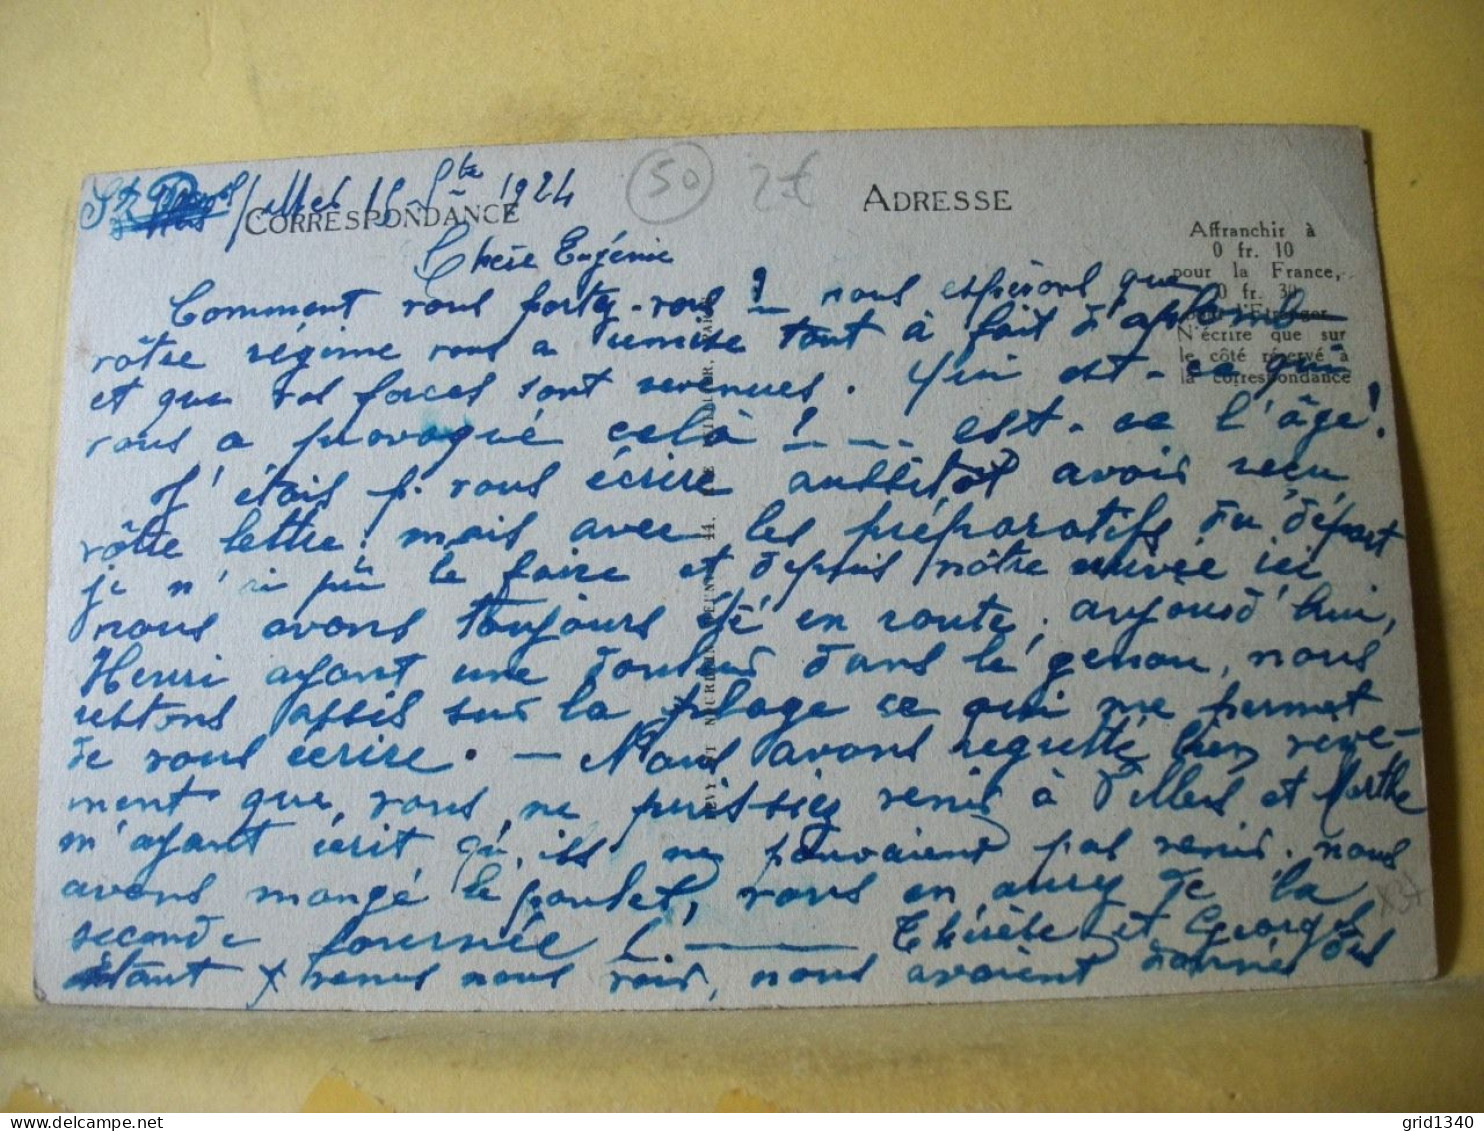 15 - 1924
50 2€
CORRESPONDANCE
ADRESSE
Affranchir à
0 fr. 10
pour la France,
0 fr. 30
N'écrire que sur
le côté réservé à
la correspondance
Chère Eugénie
Comment vous portez-vous ? nous espérons que
vôtre régime vous a remise tout à fait d'aplomb
et que vos forces sont revenues. Qui est-ce qui
vous a provoqué celà ? est-ce l'âge !
J'étais p. vous écrire aussitôt avoir reçu
vôtre lettre, mais avec les préparatifs du départ
je n'ai pû le faire et depuis nôtre arrivée ici
nous avons toujours été en route, aujourd'hui,
Henri ayant une douleur dans le genou, nous
restons assis sur la plage ce qui me permet
de vous écrire. — Nous avons regretté bien
ment que vous ne puissiez venir à Villers et Marthe
m'ayant écrit qu'ils ne pouvaient pas venir. nous
avons mangé le poulet, vous en aurez de la
seconde fournée ! Thérèse et Georges
étant venus nous voir, nous avaient donnés des
44.
grid1340